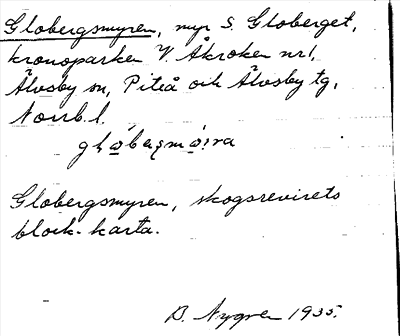 Globergsmyren, myr S. Globerget,
kronoparken V. Åkroken nr 1,
Älvsby sn, Piteå och Älvsby tg,
Norrb. l.
Globergsmyren, skogsrevirets
block-karta.
B. Nygren 1935.